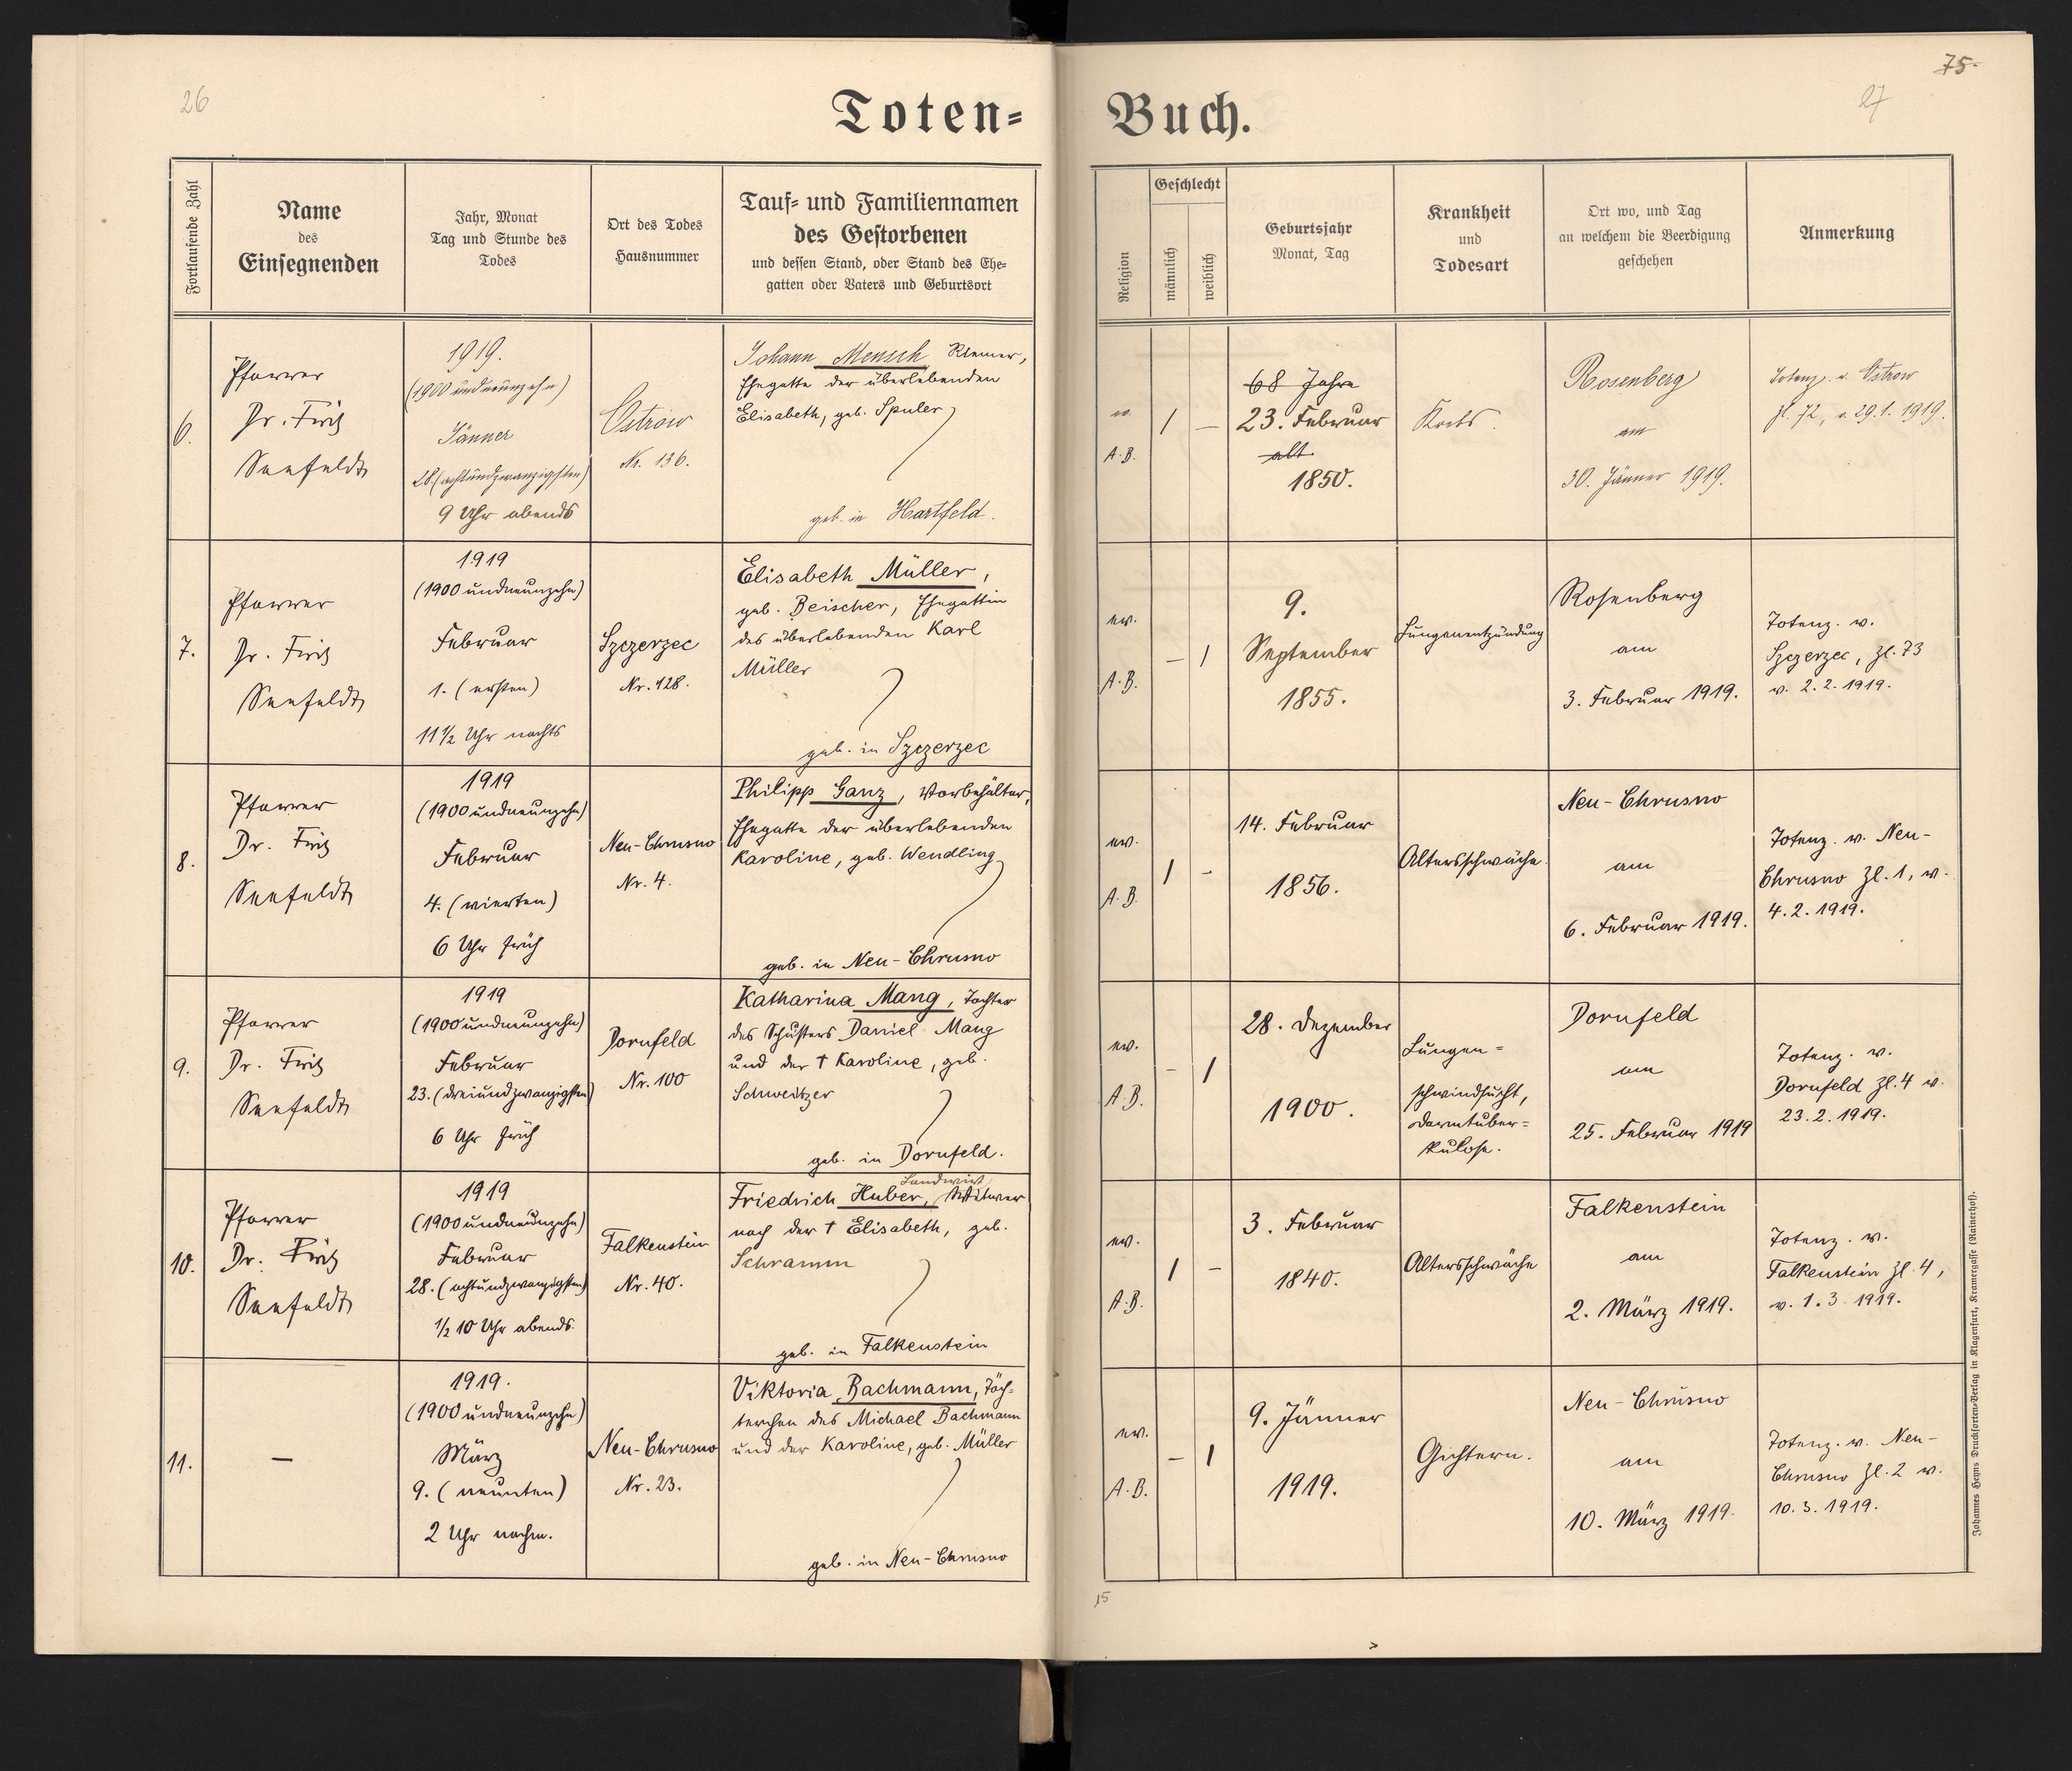 26
Toten=
Buch.
75.
27
Fortlaufende Zahl
Name
des
Einsegnenden
Jahr, Monat
Tag und Stunde des
Todes
Ort des Todes
Hausnummer
Tauf= und Familiennamen
des Gestorbenen
und dessen Stand, oder Stand des Ehe=
gatten oder Vaters und Geburtsort
Religion
Geschlecht
männlich
weiblich
Geburtsjahr
Monat, Tag
Krankheit
und
Todesart
Ort wo, und Tag
an welchem die Beerdigung
geschehen
Anmerkung
6.
Pfarrer
Dr. Fritz
Seefeldt
1919.
(1900 undneunzehn)
Jänner
28. (achtundzwanzigsten)
9 Uhr abends
Ostrów
Nr. 136.
Johann Mensch
Ehegatte der überlebenden
Elisabeth, geb. Spuler
geb. in Hartfeld.
ev.
A.B.
/
—
68 Jahre
23. Februar
alt
1850.
Krebs.
Rosenberg
am
30. Jänner 1919.
Totenz. v. Ostrow
Zl. 72, v. 29.1.1919.
7.
Pfarrer
Dr. Fritz
Seefeldt
1919
(1900 undneunzehn)
Februar
1. (ersten)
11 1/2 Uhr nachts
Szczerzec
Nr. 128.
Elisabeth Müller,
geb. Beischer, Ehegattin
des überlebenden Karl
Müller
geb. in Szczerzec
ev.
A.B.
—
/
9.
September
1855.
Lungenentzündung
Rosenberg
am
3. Februar 1919.
Totenz. v.
Szczerzec, Zl. 73
v. 2.2.1919.
8.
Pfarrer
Dr. Fritz
Seefeldt
1919
(1900 undneunzehn)
Februar
4. (vierten)
6 Uhr früh
Neu-Chrusno
Nr. 4.
Philipp Ganz, Vorbehälter,
Ehegatte der überlebenden
Karoline, geb. Wendling
geb. in Neu-Chrusno
ev.
A.B.
/
-
14. Februar
1856.
Altersschwäche.
Neu-Chrusno
am
6. Februar 1919.
Totenz. v. Neu-
Chrusno Zl. 1, v.
4.2.1919.
9.
Pfarrer
Dr. Fritz
Seefeldt
1919
(1900 undneunzehn)
Februar
23. (dreiundzwanzigsten)
6 Uhr früh
Dornfeld
Nr. 100
Katharina Mang, Tochter
des Schusters Daniel Mang
und der † Karoline, geb.
Schweitzer
geb. in Dornfeld.
ev.
A.B.
-
/
28. Dezember
1900.
Lungen=
schwindsucht,
Darmtuber=
kulose.
Dornfeld
am
25. Februar 1919
Totenz. v.
Dornfeld Zl. 4 v.
23.2.1919.
10.
Pfarrer
Dr. Fritz
Seefeldt
1919
(1900 undneunzehn)
Februar
28. (achtundzwanzigsten)
1/2 10 Uhr abends
Falkenstein
Nr. 40.
Landwirt
Friedrich Huber, Witwer
nach der † Elisabeth, geb.
Schramm
geb. in Falkenstein
ev.
A.B.
/
-
3. Februar
1840.
Altersschwäche
Falkenstein
am
2. März 1919.
Totenz. v.
Falkenstein Zl. 4,
v. 1.3.1919.
11.
—
1919.
(1900 undneunzehn)
März
9. (neunten)
2 Uhr nachm.
Neu-Chrusno
Nr. 23.
Viktoria Bachmann, Töch=
terchen des Michael Bachmann
und der Karoline, geb. Müller
geb. in Neu-Chrusno
ev.
A.B.
-
/
9. Jänner
1919.
Gichtern.
Neu-Chrusno
am
10. März 1919.
Totenz. v. Neu-
Chrusno Zl. 2 v.
10.3.1919.
15
Johannes Heyns Drucksorten=Verlag in Klagenfurt, Kramergasse (Rainerhof).